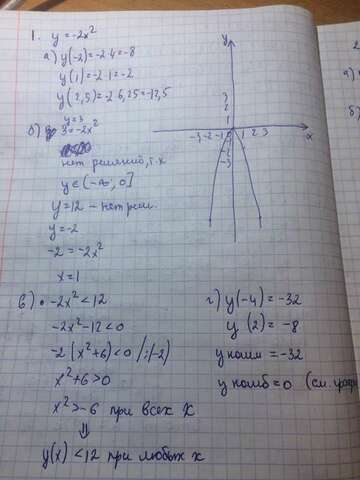 1. y = -2x²
а) y(-2) = -2·4 = -8
y(1) = -2·1 = -2
y(2,5) = -2·6,25 = -12,5
y = 3
б) 3 = -2x²
нет решений, т.к
y ∈ (-∞, 0]
y = 12 - нет реш.
y = -2
-2 = -2x²
x = 1
y
3
2
1
-3 -2 -1 1 2 3
x
-2
-3
в) • -2x² < 12
-2x² - 12 < 0
-2(x² + 6) < 0 /:(-2)
x² + 6 > 0
x² > -6 при всех x
⇓
y(x) < 12 при любых x
г) y(-4) = -32
y(2) = -8
y наим = -32
y наиб = 0 (см.
2
а)
б)